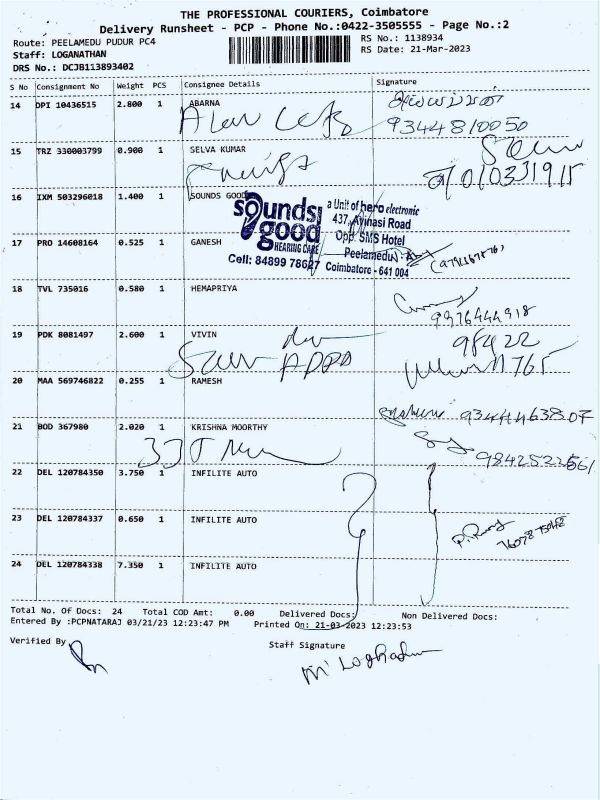 THE PROFESSIONAL COURIERS, Coimbatore
Delivery Runsheet - PCP - Phone No.:0422-3505555 - Page No.:2
Route: PEELAMEDU PUDUR PC4
RS No.: 1138934
Staff: LOGANATHAN
RS Date: 21-Mar-2023
DRS No.: DCJB113893402
S No Consignment No Weight PCS Consignee Details Signature
14 DPI 10436515 2.800 1 ABARNA
9344810050
15 TRZ 330003799 0.900 1 SELVA KUMAR
16 IXM 503296018 1.400 1 SOUNDS GOOD
sounds good
HEARING CARE
Cell: 84899 78627
a Unit of hero electronic
437, Avinasi Road
Opp. SMS Hotel
Peelamedu
Coimbatore - 641 004
17 PRO 14608164 0.525 1 GANESH
18 TVL 735016 0.580 1 HEMAPRIYA
9976444918
19 PDK 8081497 2.600 1 VIVIN
98422
11765
20 MAA 569746822 0.255 1 RAMESH
21 BOD 367980 2.020 1 KRISHNA MOORTHY
22 DEL 120784350 3.750 1 INFILITE AUTO
23 DEL 120784337 0.650 1 INFILITE AUTO
24 DEL 120784338 7.350 1 INFILITE AUTO
Total No. Of Docs: 24 Total COD Amt: 0.00 Delivered Docs: Non Delivered Docs:
Entered By :PCPNATARAJ 03/21/23 12:23:47 PM Printed On: 21-03-2023 12:23:53
Verified By
Staff Signature